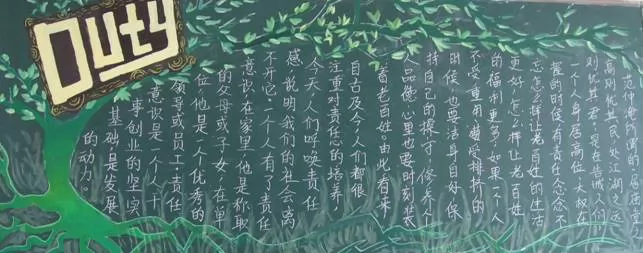 Duty
范仲淹的名言"居庙堂之
高则忧其民，处江湖之远
则忧其君"，是在告诫人们
一个人身居高位，大权在
握的时候有责任念念不
忘怎么样让老百姓的生活
更好，怎么样让老百姓
的福利更多，如果一个人
不受重用或受排挤的
时候，也要洁身自好，保
持自己的操守，修养人
人品德，心里也要时刻装
着老百姓。由此看来，
自古及今，人们都很
注重对责任心的培养
今天，人们呼唤责任
感，说明我们的社会离
不开它。一个人有了责任
意识，在家里，他是称职
的父母或子女，在单
位他是一个优秀的
领导或员工，责任
意识是一个人干
事创业的坚实
基础是发展
的动力。